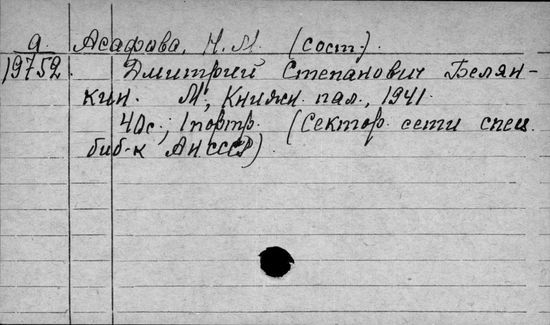 а Асафова, Н.М. (сост.)
19752 Дмитрий Степанович Белян-
кин. М., Книжн. пал., 1941.
40с.; 1 портр. (Сектор сети спец.
биб-к АН СССР)